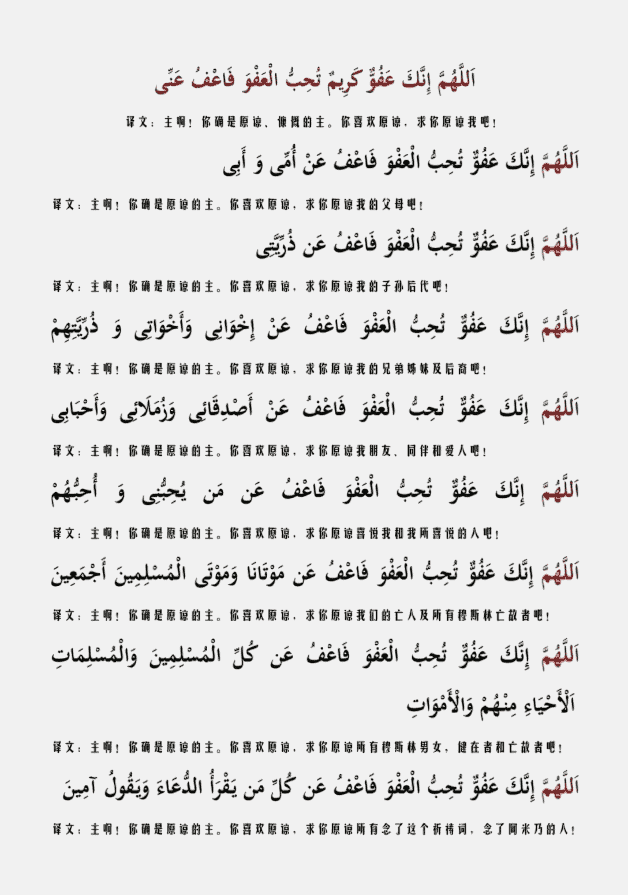 اَللَّهُمَّ إِنَّكَ عَفُوٌّ كَرِيمٌ تُحِبُّ الْعَفْوَ فَاعْفُ عَنِّى
译文：主啊！你确是原谅、慷慨的主。你喜欢原谅，求你原谅我吧！
اَللَّهُمَّ إِنَّكَ عَفُوٌّ تُحِبُّ الْعَفْوَ فَاعْفُ عَنْ أُمِّى وَ أَبِى
译文：主啊！你确是原谅的主。你喜欢原谅，求你原谅我的父母吧！
اَللَّهُمَّ إِنَّكَ عَفُوٌّ تُحِبُّ الْعَفْوَ فَاعْفُ عَن ذُرِّيَّتِى
译文：主啊！你确是原谅的主。你喜欢原谅，求你原谅我的子孙后代吧！
اَللَّهُمَّ إِنَّكَ عَفُوٌّ تُحِبُّ الْعَفْوَ فَاعْفُ عَنْ إِخْوَانِى وَأَخْوَاتِى وَ ذُرِّيَّتِهِمْ
译文：主啊！你确是原谅的主。你喜欢原谅，求你原谅我的兄弟姊妹及后裔吧！
اَللَّهُمَّ إِنَّكَ عَفُوٌّ تُحِبُّ الْعَفْوَ فَاعْفُ عَنْ أَصْدِقَائِى وَزُمَلَائِى وَأَحْبَابِى
译文：主啊！你确是原谅的主。你喜欢原谅，求你原谅我朋友、同伴和爱人吧！
اَللَّهُمَّ إِنَّكَ عَفُوٌّ تُحِبُّ الْعَفْوَ فَاعْفُ عَن مَن يُحِبُّنِى وَ أُحِبُّهُمْ
译文：主啊！你确是原谅的主。你喜欢原谅，求你原谅喜悦我和我所喜悦的人吧！
اَللَّهُمَّ إِنَّكَ عَفُوٌّ تُحِبُّ الْعَفْوَ فَاعْفُ عَن مَوْتَانَا وَمَوْتَى الْمُسْلِمِينَ أَجْمَعِينَ
译文：主啊！你确是原谅的主。你喜欢原谅，求你原谅我们的亡人及所有穆斯林亡故者吧！
اَللَّهُمَّ إِنَّكَ عَفُوٌّ تُحِبُّ الْعَفْوَ فَاعْفُ عَن كُلِّ الْمُسْلِمِينَ وَالْمُسْلِمَاتِ
اَلْأَحْيَاءِ مِنْهُمْ وَالْأَمْوَاتِ
译文：主啊！你确是原谅的主。你喜欢原谅，求你原谅所有穆斯林男女，健在者和亡故者吧！
اَللَّهُمَّ إِنَّكَ عَفُوٌّ تُحِبُّ الْعَفْوَ فَاعْفُ عَن كُلِّ مَن يَقْرَأُ الدُّعَاءَ وَيَقُولُ آمِينَ
译文：主啊！你确是原谅的主。你喜欢原谅，求你原谅所有念了这个祈祷词，念了阿米乃的人！